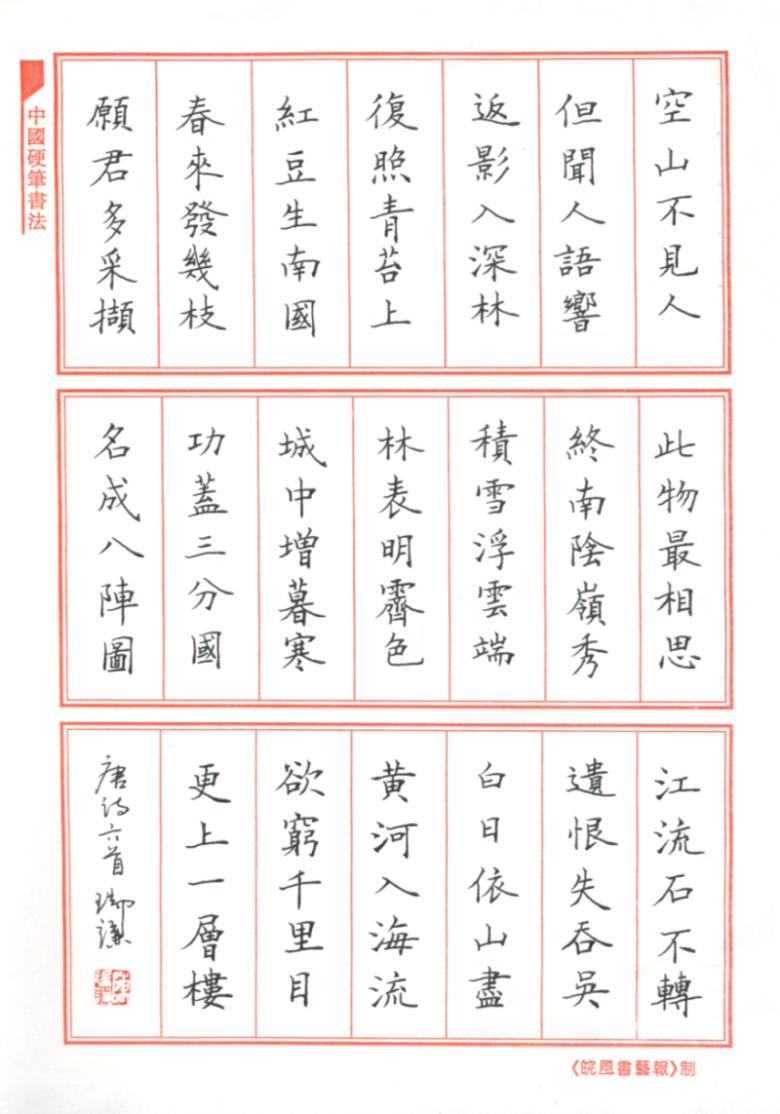 中國硬筆書法
空山不見人
但聞人語響
返影入深林
復照青苔上
紅豆生南國
春來發幾枝
願君多采擷
此物最相思
終南陰嶺秀
積雪浮雲端
林表明霽色
城中增暮寒
功蓋三分國
名成八陣圖
江流石不轉
遺恨失吞吳
白日依山盡
黄河入海流
欲窮千里目
更上一層樓
唐詩六首
《皖風書藝報》制